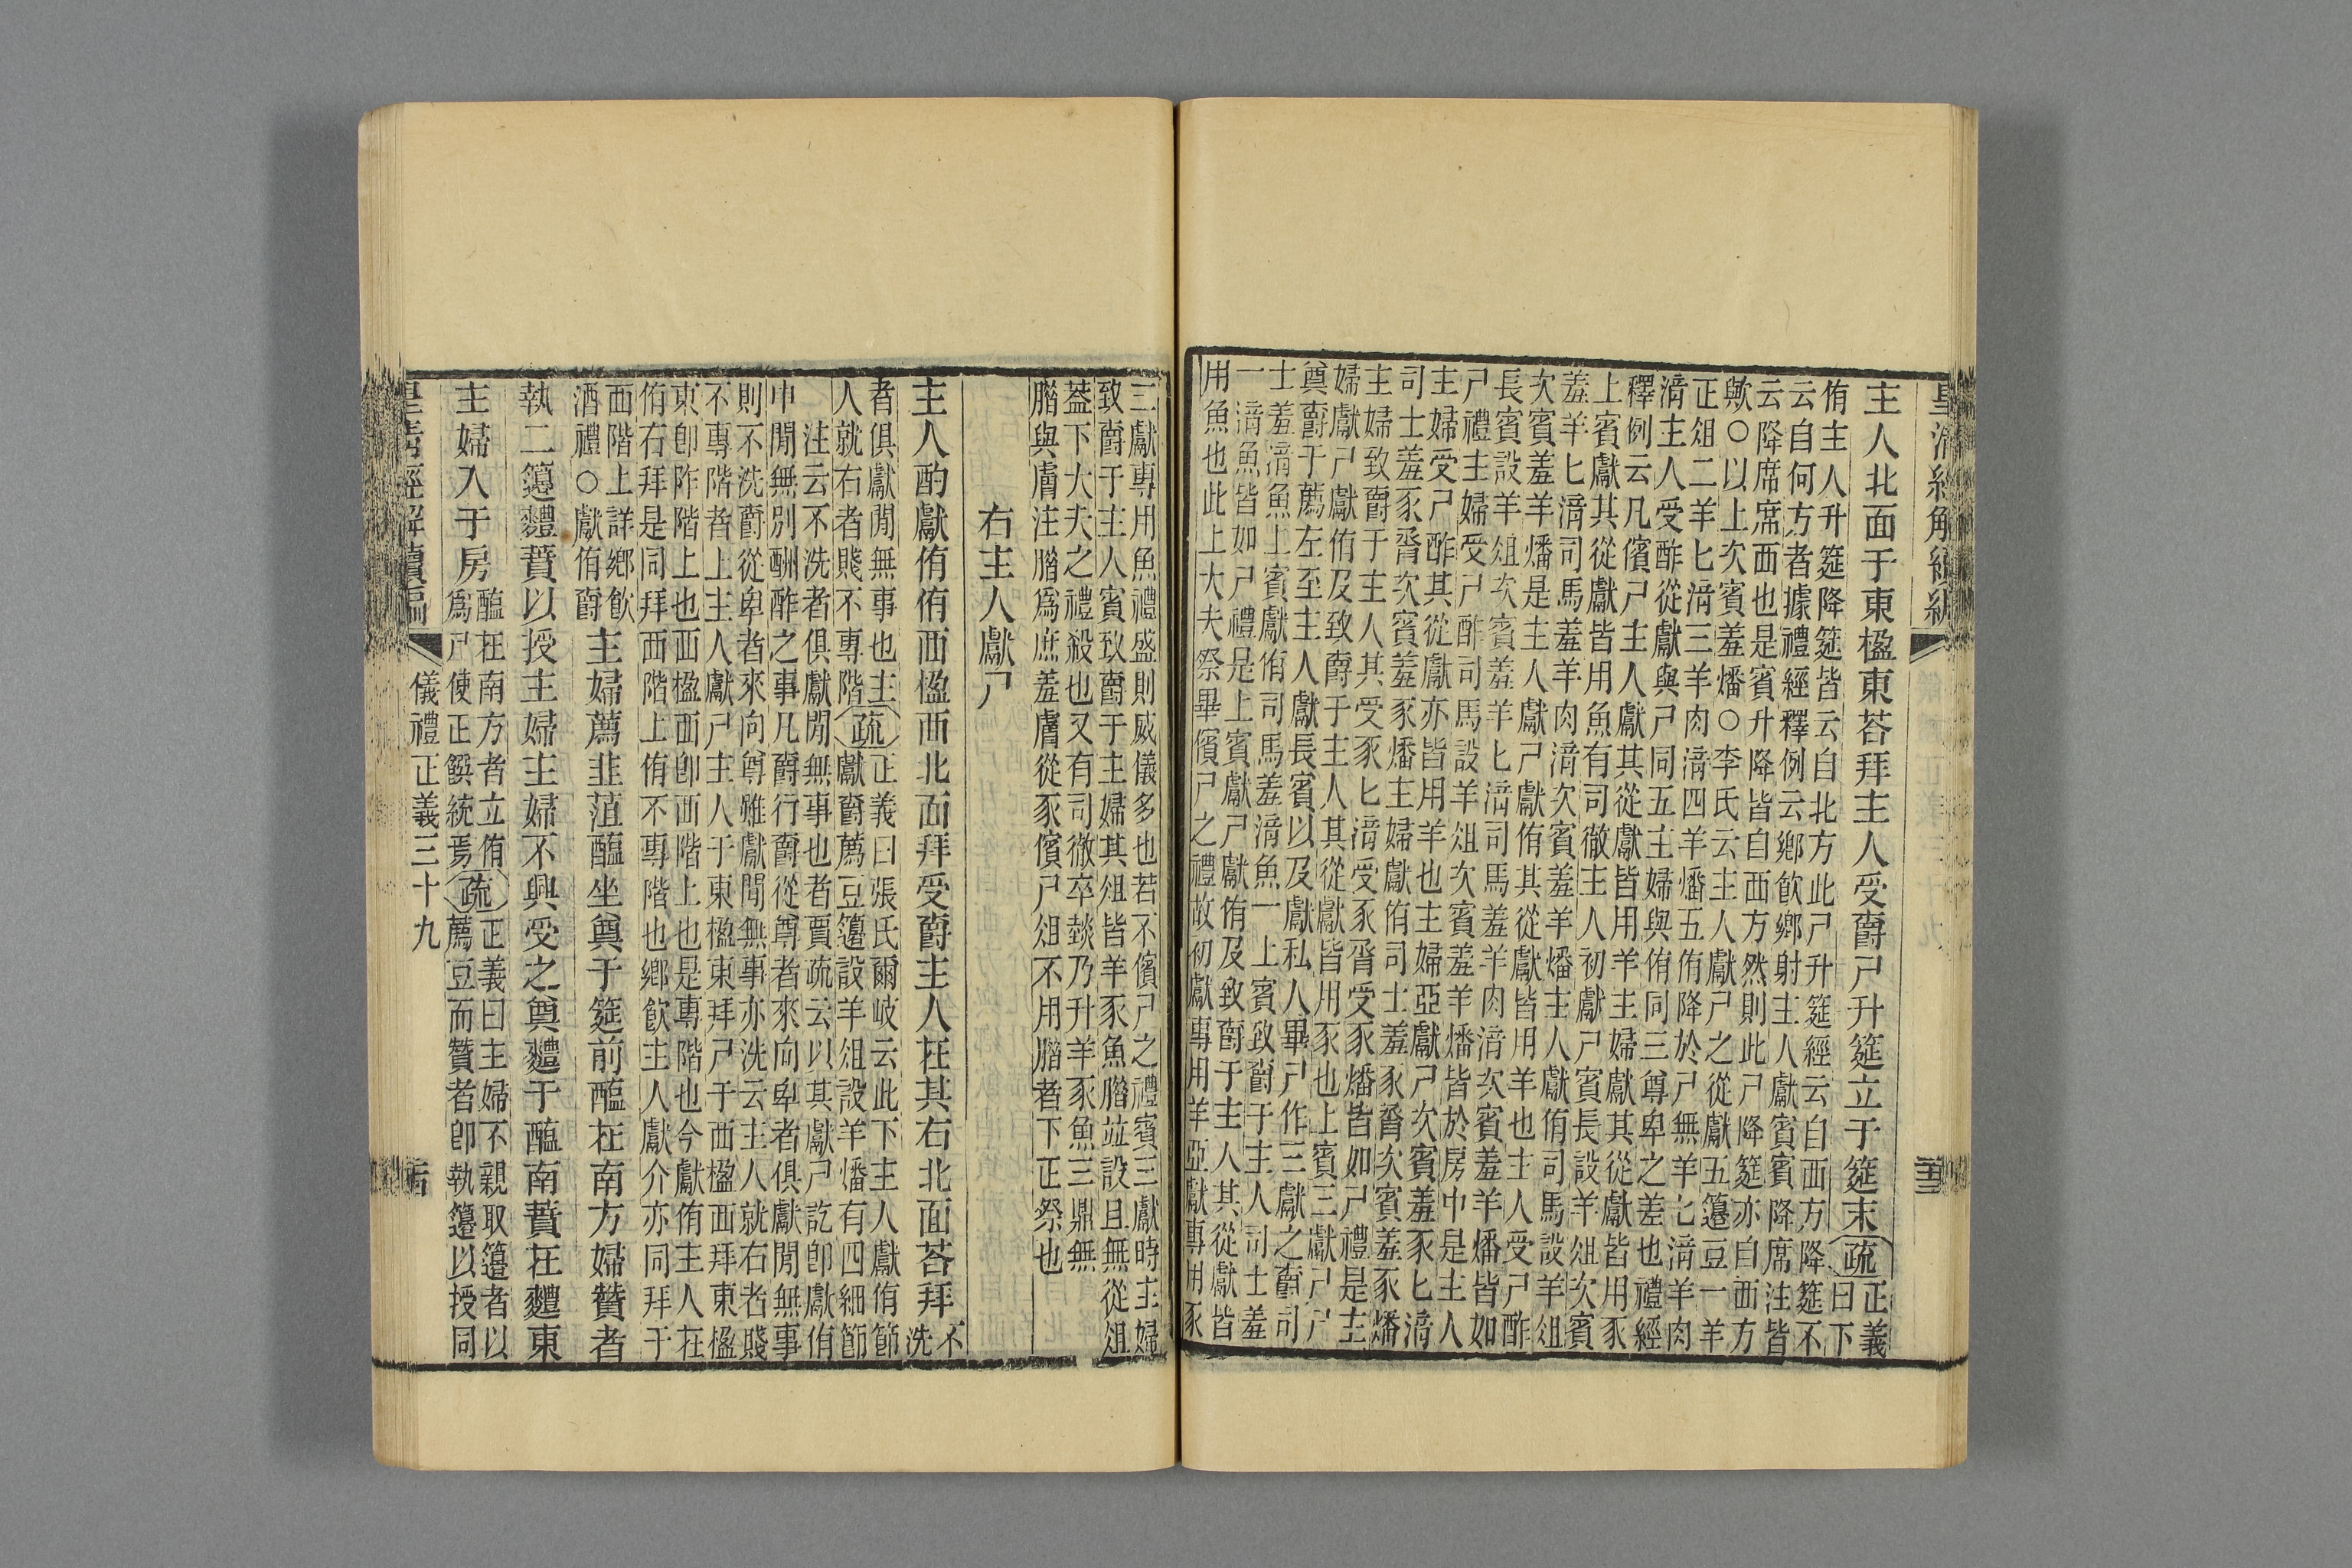 主人北面于東楹東荅拜主人受爵尸升筵立于筵末疏正義
曰下
侑主人升筵降筵皆云自北方此尸升筵經云自西方降筵不
云自何方者據禮經釋例云鄉飲鄉射主人獻賓賓降席注皆
云降席席西也是賓升降皆自西方然則此尸降筵亦自西方
歟○以上次賓羞燔○李氏云主人獻尸之從獻五籩豆一羊
正俎二羊匕湆三羊肉湆四羊燔五侑降於尸無羊匕湆羊肉
湆主人受酢從獻與尸同五主婦與侑同三尊卑之差也禮經
釋例云凡儐尸主人獻其從獻皆用羊主婦獻其從獻皆用豕
上賓獻其從獻皆用魚有司徹主人初獻尸賓長設羊俎次賓
羞羊匕湆司馬羞羊肉湆次賓羞羊燔主人獻侑司馬設羊俎
次賓羞羊燔是主人獻尸獻侑其從獻皆用羊也主人受尸酢
長賓設羊俎次賓羞羊匕湆司馬羞羊肉湆次賓羞羊燔皆如
尸禮主婦受尸酢司馬設羊俎次賓羞羊燔皆於房中是主人
主婦受尸酢其從獻亦皆用羊也主婦亞獻尸次賓羞豕匕湆
司士羞豕脀次賓羞豕燔主婦獻侑司士羞豕脀次賓羞豕燔
主婦致爵于主人其受豕匕湆受豕脀受豕燔皆如尸禮是主
婦獻尸獻侑及致爵于主人其從獻皆用豕也上賓三獻尸尸
奠爵于薦左至主人獻長賓以及獻私人畢尸作三獻之爵司
士羞湆魚上賓獻侑司馬羞湆魚一上賓致爵于主人司士羞
一湆魚皆如尸禮是上賓獻尸獻侑及致爵于主人其從獻皆
用魚也此上大夫祭畢儐尸之禮故初獻專用羊亞獻專用豕
三獻專用魚禮盛則威儀多也若不儐尸之禮賓三獻時主婦
致爵于主人賓致爵于主婦其俎皆羊豕魚腊竝設且無從俎
葢下大夫之禮殺也又有司徹卒燅乃升羊豕魚三鼎無
腊與膚注腊爲庶羞膚從豕儐尸俎不用腊者下正祭也
右主人獻尸
主人酌獻侑侑西楹西北面拜受爵主人在其右北面荅拜不
洗
者俱獻閒無事也主
人就右者賤不專階疏正義曰張氏爾岐云此下主人獻侑節
獻爵薦豆籩設羊俎設羊燔有四細節
注云不洗者俱獻閒無事也者賈疏云以其獻尸訖卽獻侑
中閒無別酬酢之事凡爵行爵從尊者來向卑者俱獻閒無事
則不洗爵從卑者來向尊雖獻閒無事亦洗云主人就右者賤
不專階者上主人獻尸主人于東楹東拜尸于西楹西拜東楹
東卽阼階上也西楹西卽西階上也是專階也今獻侑主人在
侑右拜是同拜西階上侑不專階也鄉飲主人獻介亦同拜于
西階上詳鄉飲
酒禮○獻侑爵主婦薦韭菹醢坐奠于筵前醢在南方婦贊者
執二籩麷蕡以授主婦主婦不興受之奠麷于醢南蕡在麷東
主婦入于房醢在南方者立侑
爲尸使正饌統焉疏正義曰主婦不親取籩者以
薦豆而贊者卽執籩以授同
皇清經解續編
儀禮正義三十九